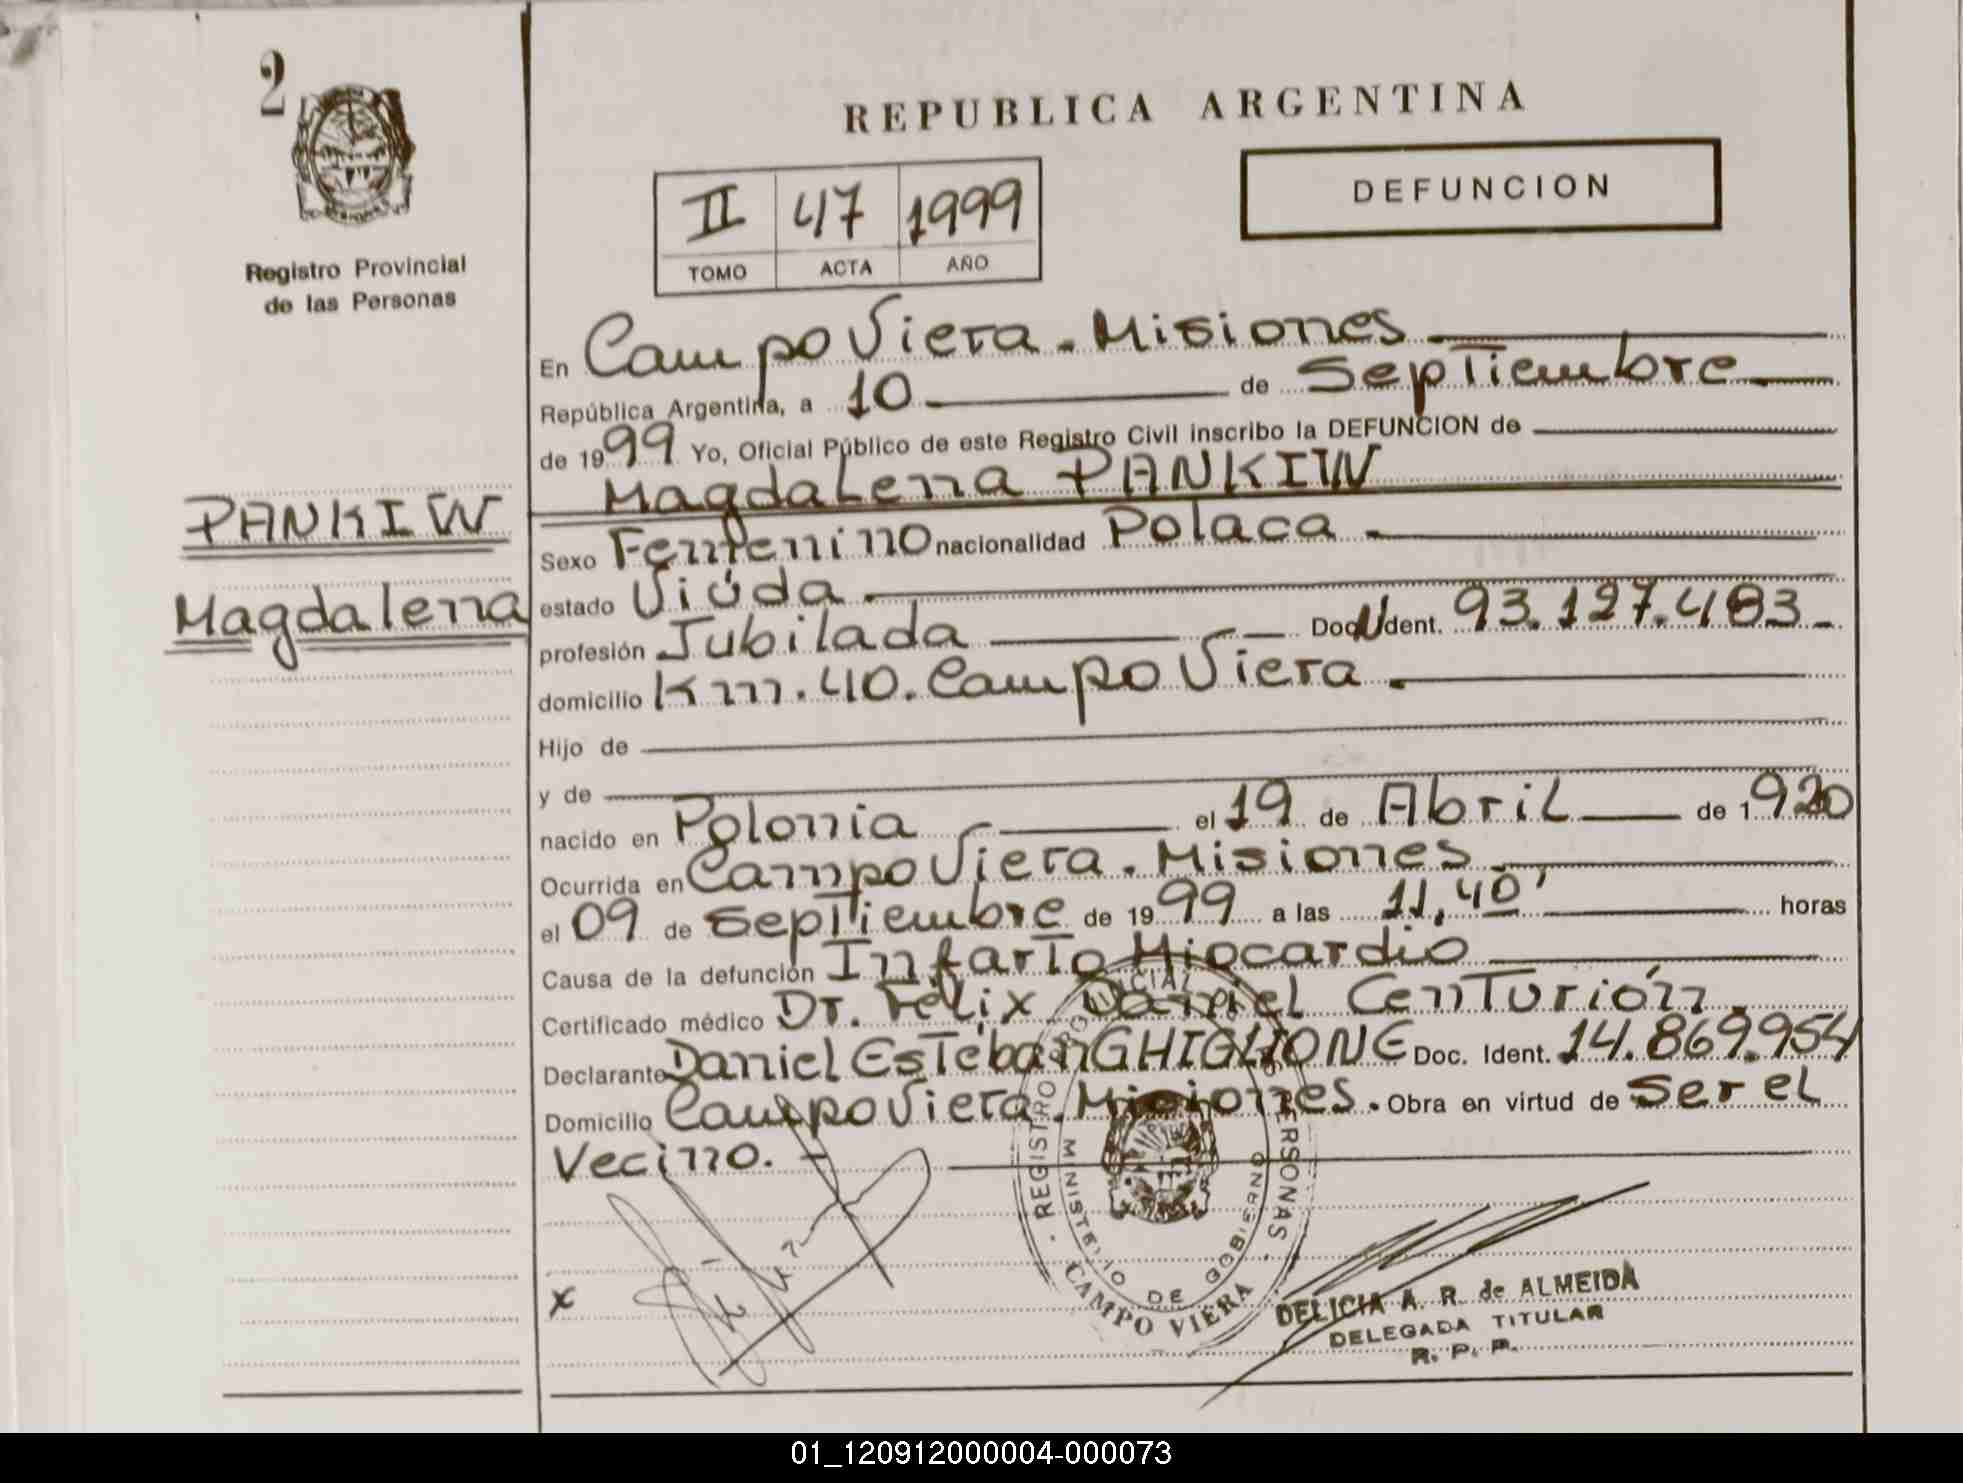 2
REPUBLICA ARGENTINA
DEFUNCION
II 47 1999
TOMO ACTA AÑO
Registro Provincial
de las Personas
PANKIW
Magdalena
En Campo Viera. Misiones
República Argentina, a 10 de Septiembre
de 1999 Yo, Oficial Público de este Registro Civil inscribo la DEFUNCION de
Magdalena PANKIW
Sexo Femenino nacionalidad Polaca
estado Viúda
profesión Jubilada Doc. Ident. 93.127.483
domicilio Km. 40. Campo Viera
Hijo de
y de
nacido en Polonia el 19 de Abril de 1920
Ocurrida en Campo Viera. Misiones
el 09 de Septiembre de 1999 a las 11,40' horas
Causa de la defunción Infarto Miocardio
Certificado médico Dr. Félix Daniel Centurión
Declarante Daniel Esteban GHIGLIONE Doc. Ident. 14.869.954
Domicilio Campo Viera. Misiones. Obra en virtud de Ser el
Vecino.
REGISTRO PROVINCIAL DE LAS PERSONAS
MINISTERIO DE GOBIERNO
CAMPO VIERA
x
DELICIA A. R. de ALMEIDA
DELEGADA TITULAR
R. P. P.
01_120912000004-000073